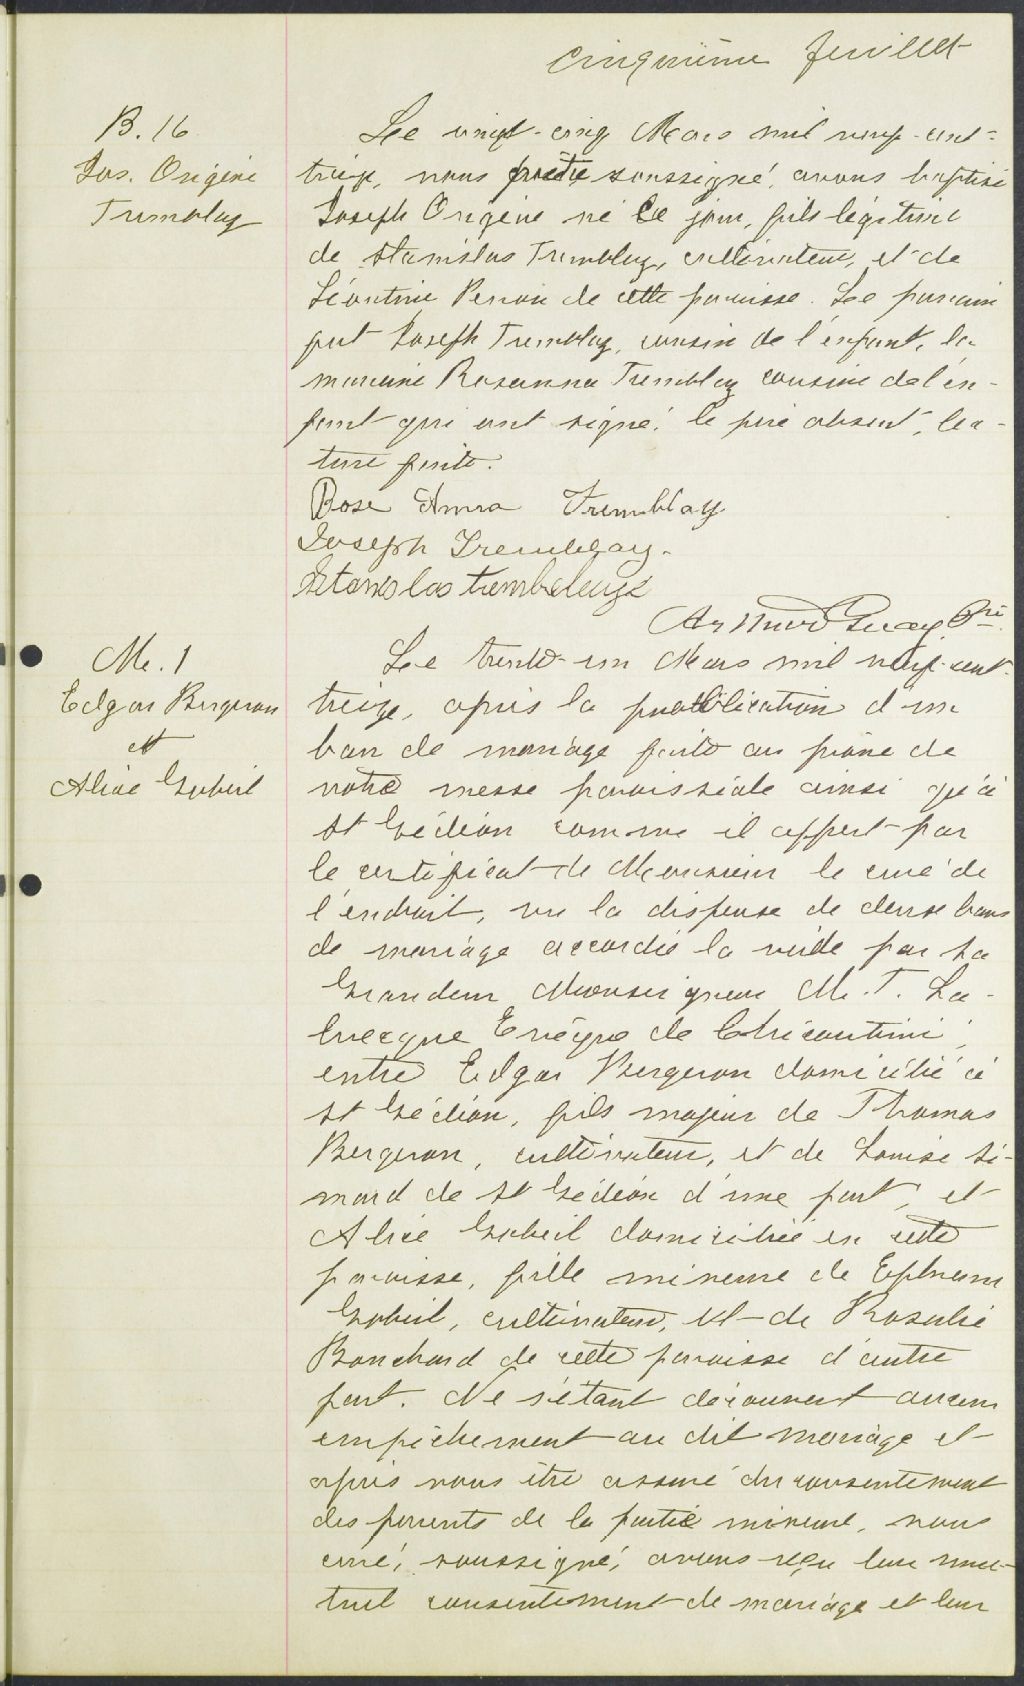 cinquième feuillet
B. 16
Jos. Origène
Tremblay
Le vingt-cinq Mars mil neuf-cent-
treize, nous prêtre soussigné, avons baptisé
Joseph Origène né ce jour, fils légitime
de Stanislas Tremblay, cultivateur, et de
Léontine Perron de cette paroisse. Le parrain
fut Joseph Tremblay, cousin de l'enfant, la
marraine Rosanna Tremblay cousine de l'en-
fant qui ont signé, le père absent, lec-
ture faite.
Rose Anna Tremblay
Joseph Tremblay.
Stanislas
Arthur Guay, Ptre
M. 1
Edgar Bergeron
et
Alice Gobeil
Le trente-un Mars mil neuf-cent-
treize, après la publication d'un
ban de mariage faite au prône de
notre messe paroissiale ainsi qu'à
St Gédéon comme il appert par
le certificat de Monsieur le curé de
l'endroit, vu la dispense de deux bans
de mariage accordée la veille par Sa
Grandeur Monseigneur M. T. La-
brecque Evêque de Chicoutimi;
entre Edgar Bergeron domicilié à
St Gédéon, fils majeur de Thomas
Bergeron, cultivateur, et de Louise Si-
mard de St Gédéon d'une part, et
Alice Gobeil domiciliée en cette
paroisse, fille mineure de Ephrem
Gobeil, cultivateur, et de Rosalie
Bouchard de cette paroisse d'autre
part. Ne s'étant découvert aucun
empêchement au dit mariage et
après nous être assuré du consentement
des parents de la partie mineure, nous
curé, soussigné, avons reçu leur mu-
tuel consentement de mariage et leur